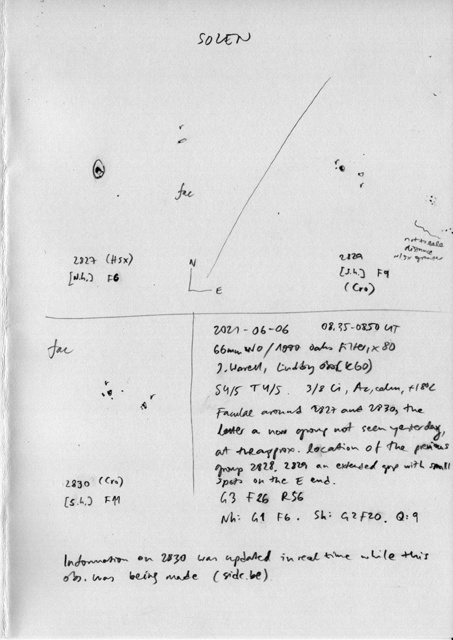 SOLEN
fac
not to scale
distance
2827 (HSX)
[N.h.] F6
N
E
2829
[S.h.] F9
(Cro)
fac
2830 (Cro)
[S.h.] F11
2021-06-06 08.35-0850 UT
66mm W0/1090 Filter, x80
J. Warell, Lindby (K60)
S4/5 T4/5. 3/8 Ci, Ac, calm, +18°C
Faculae around 2827 and 2830, the
latter a new group not seen yesterday,
at the approx. location of the previous
group 2828. 2829 an extended grp with small
spots on the E end.
G3 F26 R56
Nh: G1 F6. Sh: G2 F20. Q: 9
Information on 2830 was updated in real time while this
obs. was being made (sidc.be)